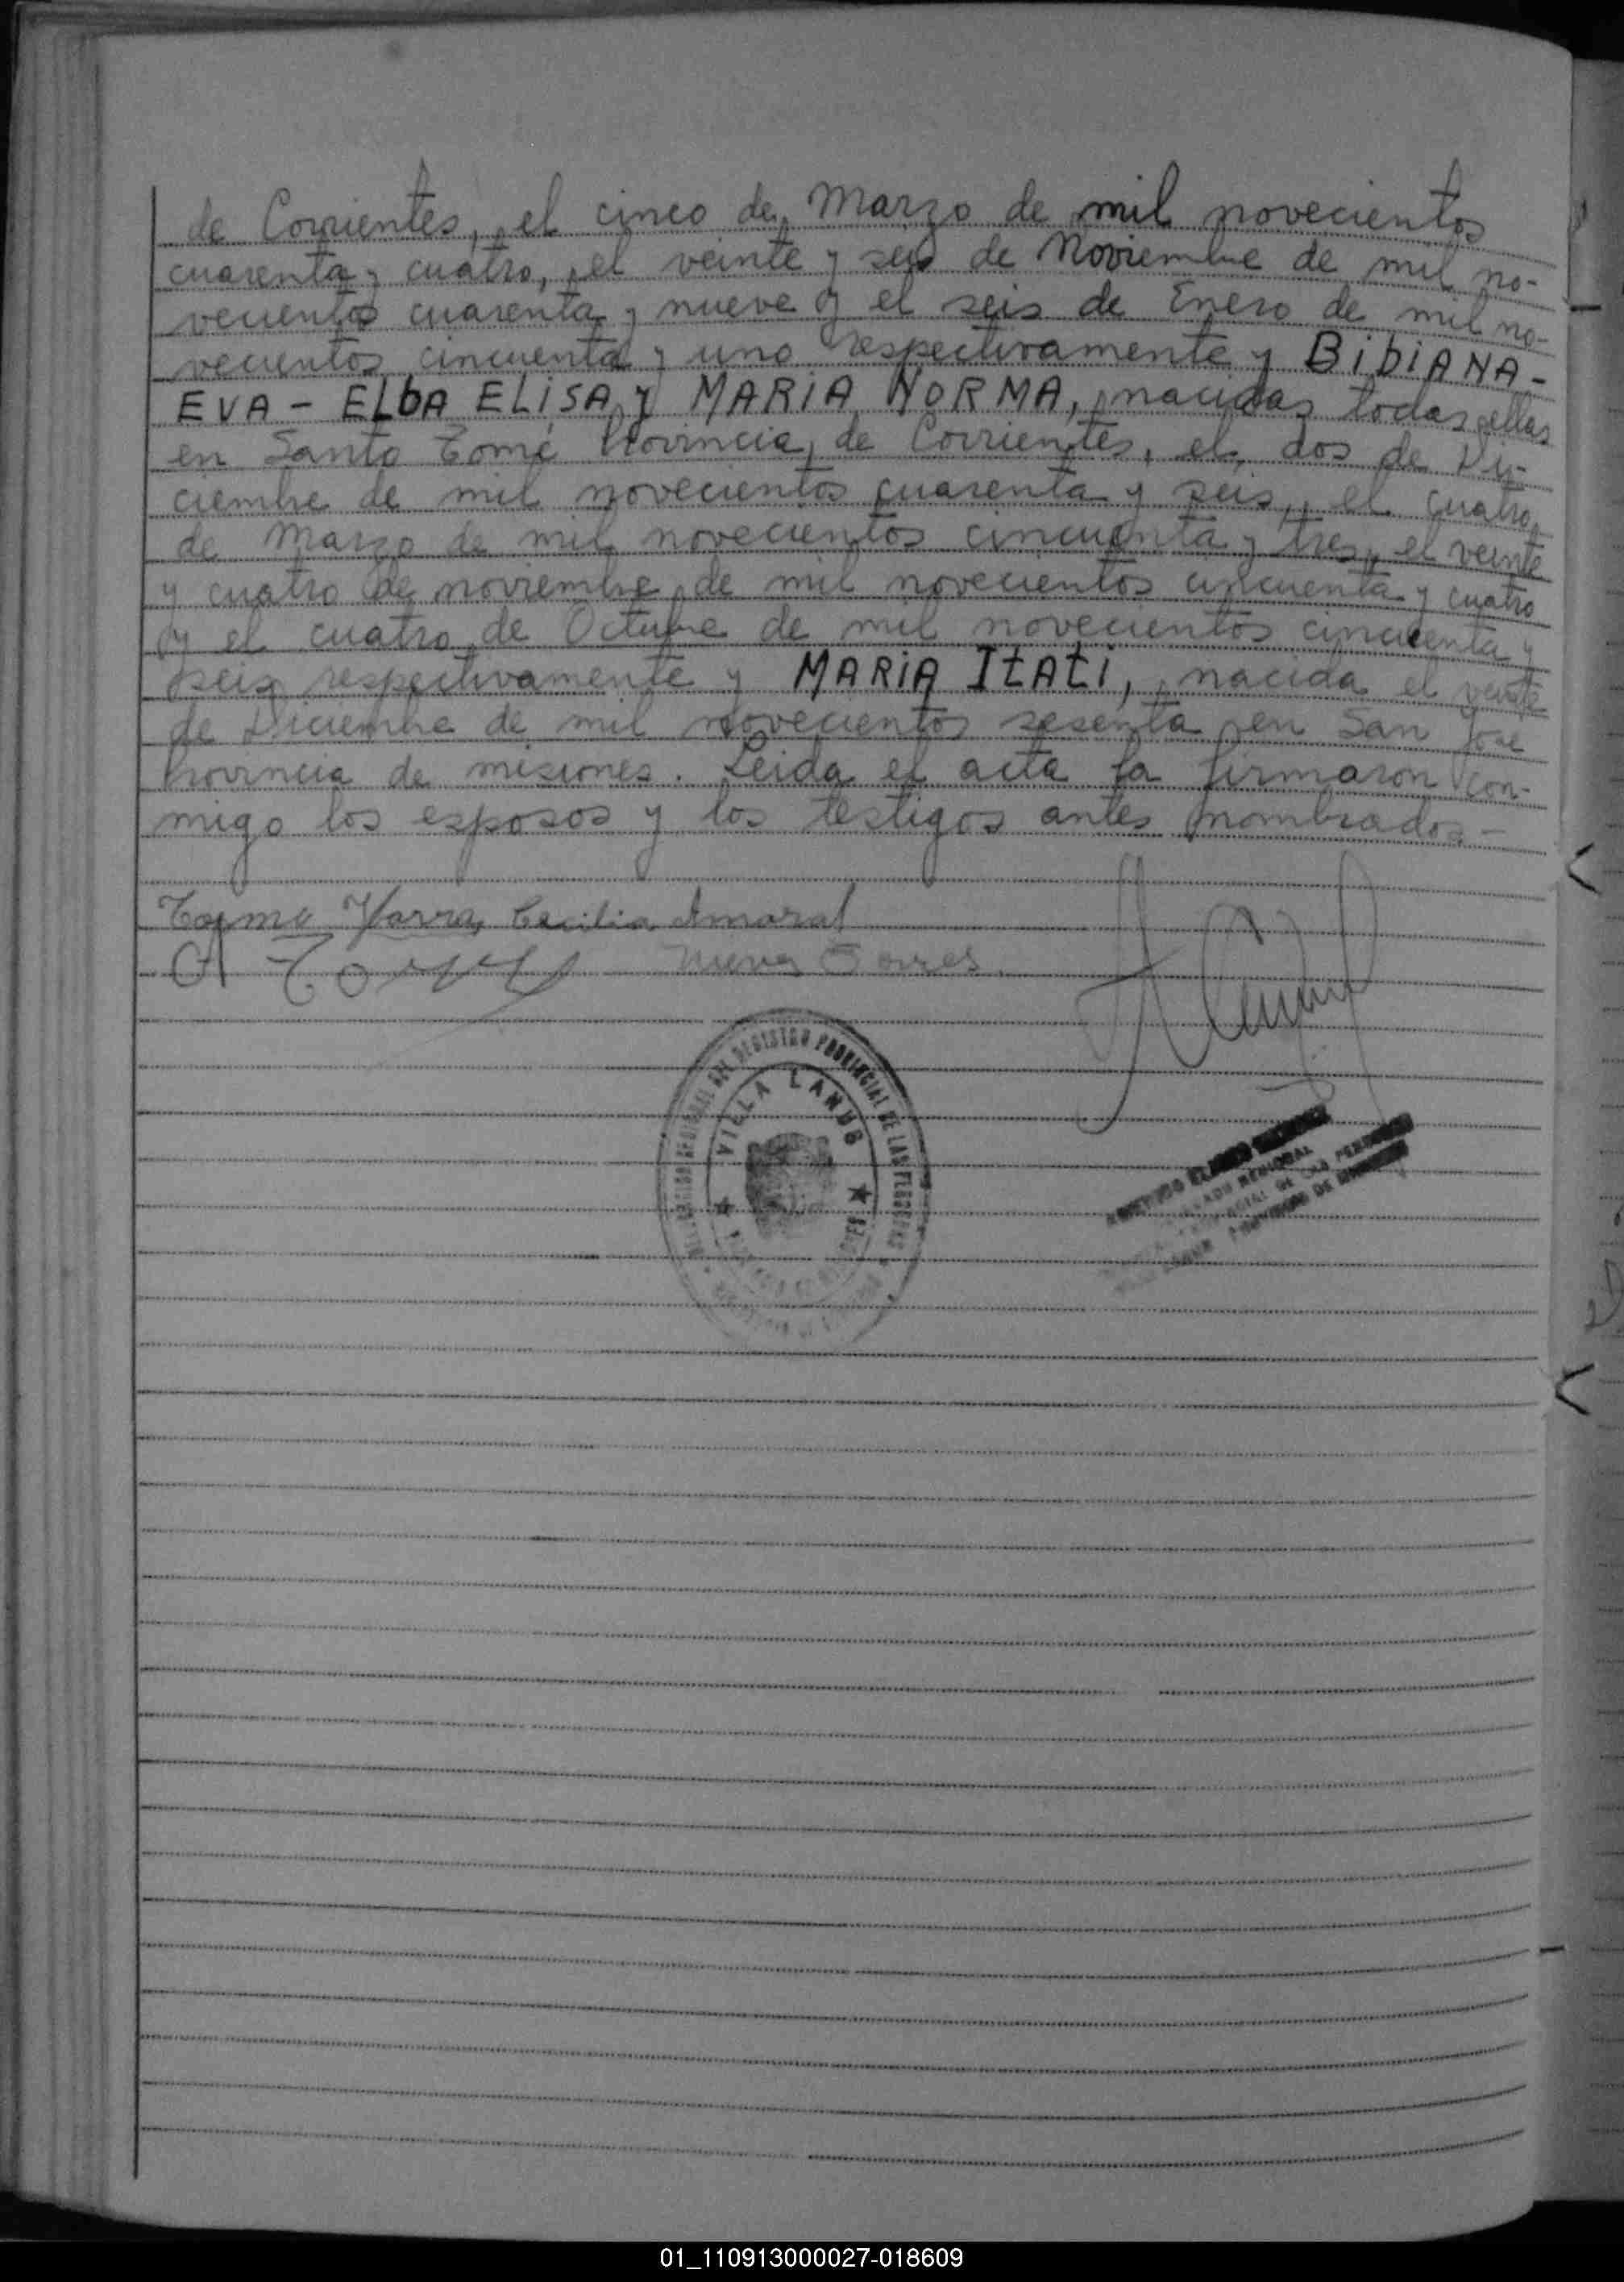 de Corrientes, el cinco de Marzo de mil novecientos
cuarenta y cuatro, el veinte y seis de Noviembre de mil no-
vecientos cuarenta y nueve y el seis de Enero de mil no-
vecientos cincuenta y uno respectivamente y BibiANA-
EVA - ELbA ELiSA y MARiA NORMA, nacidas todas ellas
en Santo Tomé Provincia de Corrientes, el dos de Di-
ciembre de mil novecientos cuarenta y seis, el cuatro
de Marzo de mil novecientos cincuenta y tres, el veinte
y cuatro de noviembre de mil novecientos cincuenta y cuatro
y el cuatro de Octubre de mil novecientos cincuenta y
seis respectivamente y MARiA ItAti, nacida el veinte
de Diciembre de mil novecientos sesenta en San José
Provincia de misiones. Leida el acta la firmaron con-
migo los esposos y los testigos antes nombrados-
Cecilia Amaral
Torres
REGISTRO PROVINCIAL DE LAS PERSONAS
VILLA LANUS
REGIONAL
DE LAS
DE
01_110913000027-018609